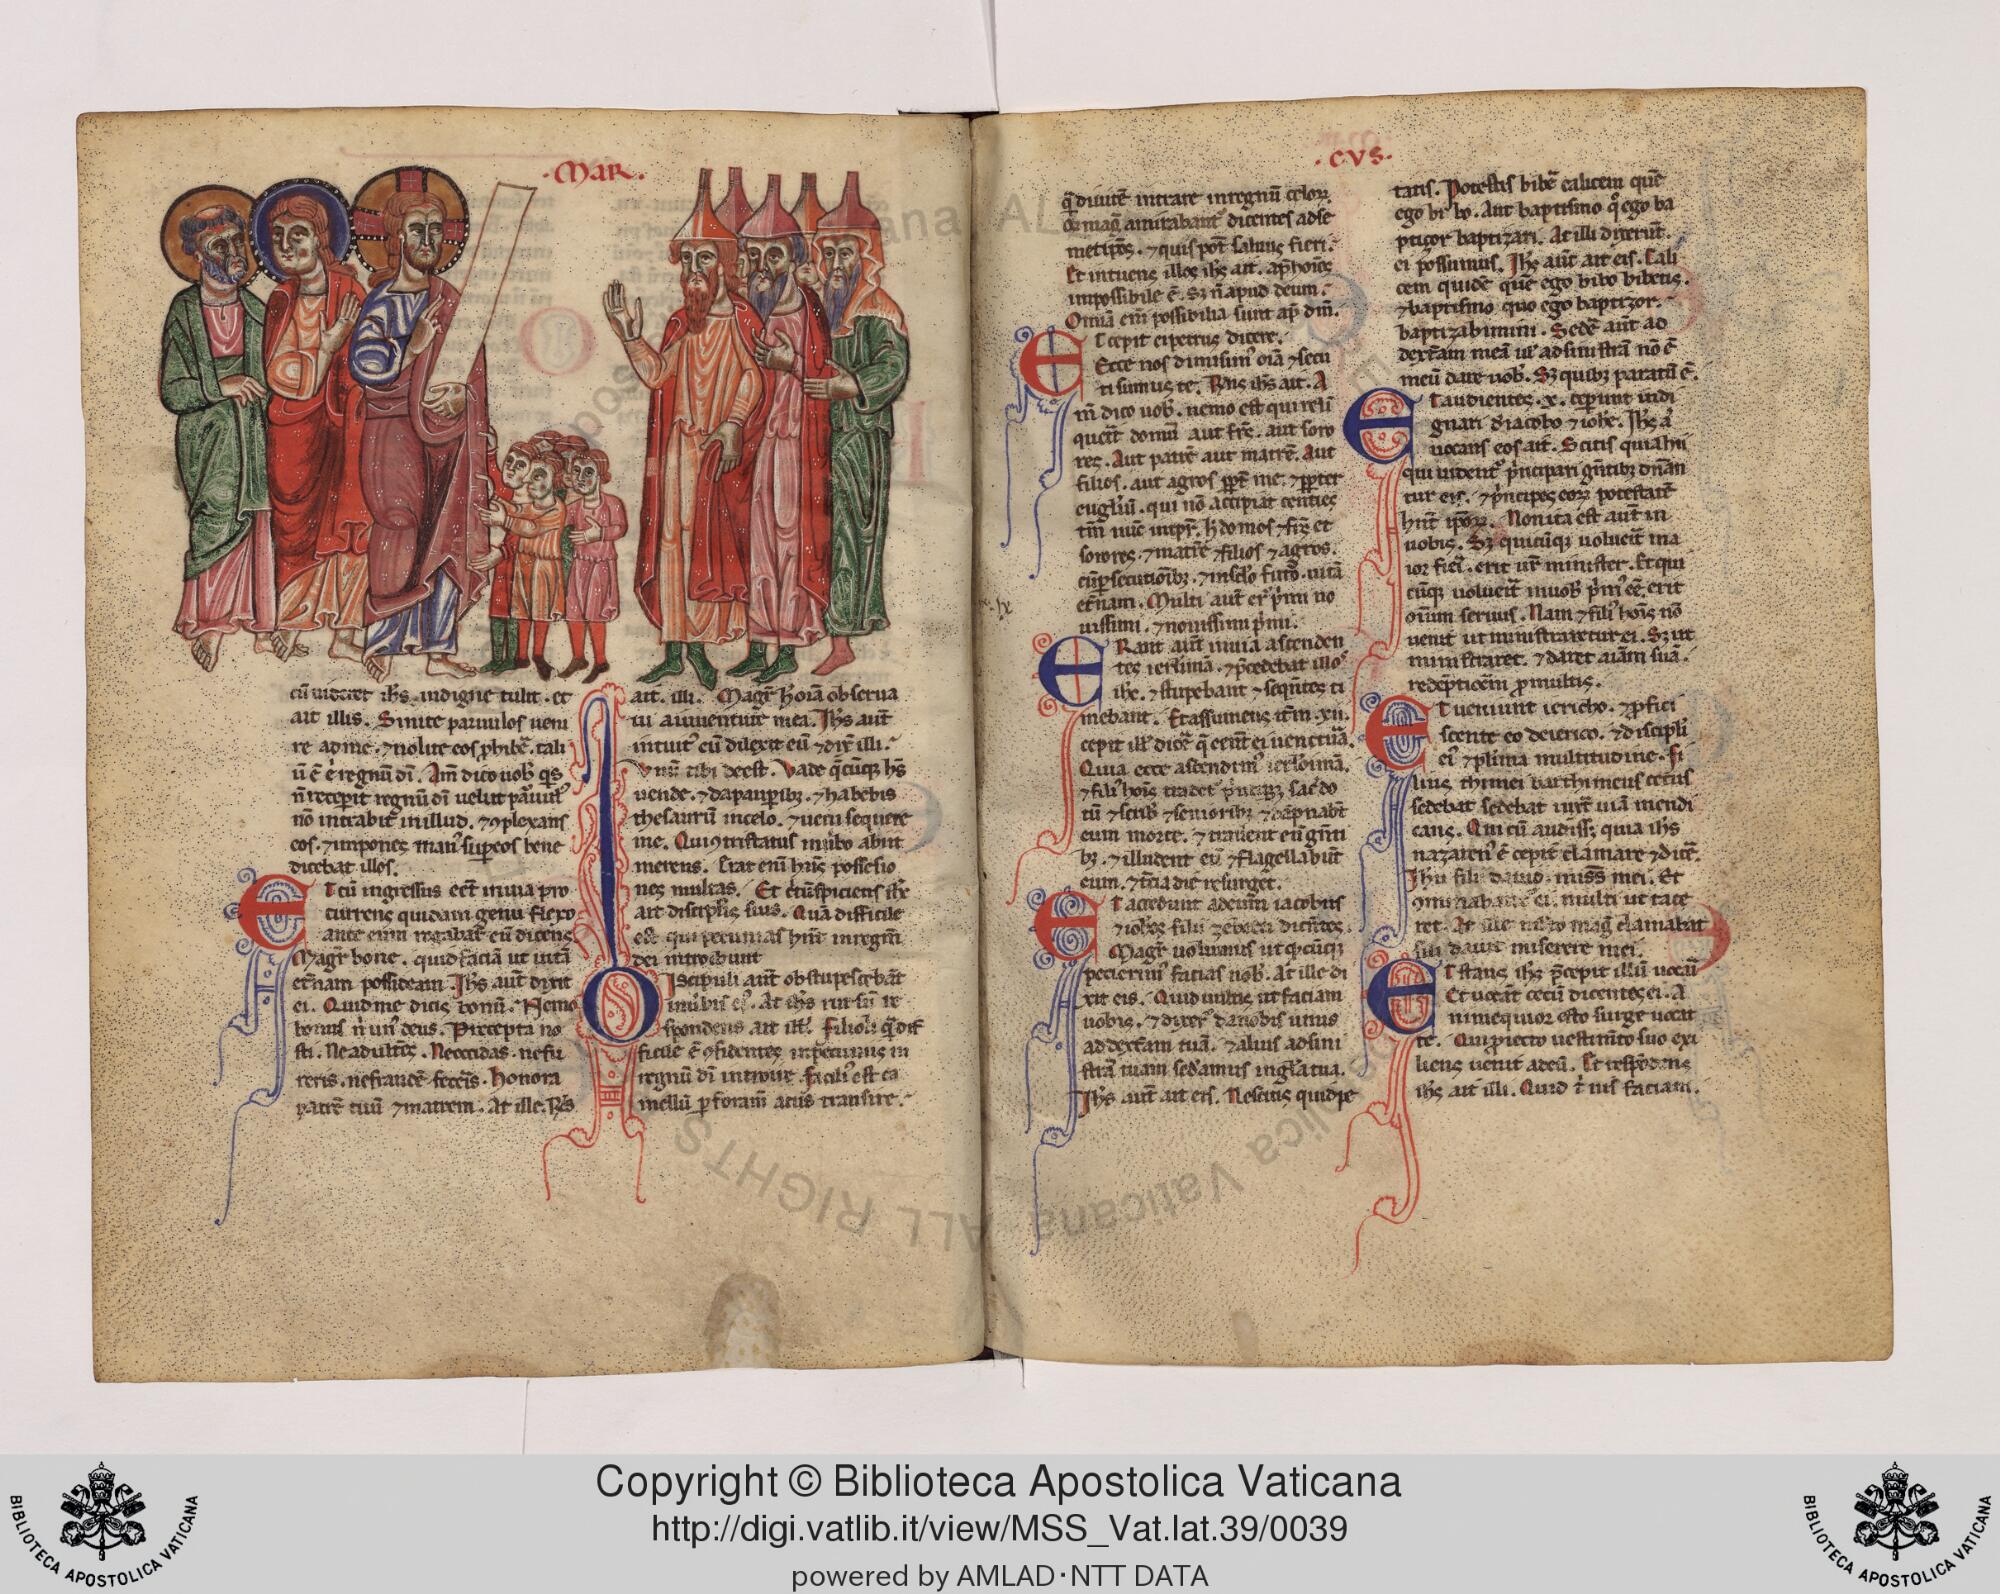 ·Mar·
cū uideret ih̄s. indigne tulit. et
ait illis. Sinite paruulos ueni
re ad me. ⁊ nolite eos ꝓhibē. tali
ū ē ē regnū dī. Am̄ dico uob̓ q̄s
n̄ receperit regnū dī uelut paruul̓
nō intrabit̄ in illud. ⁊ ꝯplexans
eos. ⁊ imponēs man̓ sup eos bene
dicebat illos.
Et cū ingressus eēt in uia pro
currens quidam genu flexo
ante eum rogabat̄ eū dicens
Magr̄ bone. quid faciā ut uitā
et̄nam possideam. Ih̄s aut̄ dixit
ei. Quid me dicis bonū. Nemo
bonus n̄ un̓ deus. Precepta no
sti. Ne adult̄es. Ne occidas. ne fu
reris. ne fraudē feceīs. Honora
patrē tuū ⁊ matrem. At ille. Rn̄s
ait. illi. Magr̄ h̄ oīa obserua
ui a iuuentute mea. Ih̄s aut̄
intuit̓ eū dilexit eū ⁊ dix̄ illi.
Vnū tibi deest. Vade q̄cūqꝫ h̄s
uende. ⁊ da paupībꝫ. ⁊ habebis
thesaurū in celo. ⁊ ueni sequere
me. Qui ꝯtristatus in uerbo abiit
merens. Erat enī h̄ns possessio
nes multas. Et c̄cūspiciens ih̄c
ait discipłis suis. Quā difficile
est̄ qui pecunias hn̄t in regnū
dei introibunt
Discipuli aut̄ obstupescebāt
in uībis ei̓. At ih̄s rursū re
spondens ait ill̓. Filioli q̄ dif
ficile ē ꝯfidentes in pecuniis in
regnū dī introire. facili̓ est ca
mellū p foram̄ acus transire.
·CVS·
q̄ diuitē intrare in regnū celoꝝ.
Q̄ mag̓ amirabant̄ dicentes ad se
metip̄os. ⁊ quis pot̄ saluus fieri.
Et intuens illos ih̄s ait. ap̄ hoīēs
impossibile ē. Sꝫ n̄ apud deum.
Omīa em̄ possibilia sunt ap̄ dm̄.
Et cepit ei petrus dicere.
Ecce nos dimisim̓ oīa ⁊ secu
ti sumus te. Rn̄s ih̄s ait. A
m̄ dico uob̓. nemo est qui reli
querit domū aut fr̄s. aut soro
res. Aut patrē aut matrē. Aut
filios. aut agros ꝓpt̄ me. ⁊ ꝓpter
eugl̄iū. qui nō accipiat centies
tm̄ nūc in tp̄r h̄ domos ⁊ fr̄s et
sorores. ⁊ matrē ⁊ filios ⁊ agros.
cū psecutioībꝫ. ⁊ in sclo futō. uitā
et̄nam. Multi aut̄ er̄ p̄mi no
uissimi. ⁊ nouissimi p̄mi.
Erant aut̄ in uia ascenden
tes ierłimā. ⁊ p̄cedebat illos
ih̄c. ⁊ stupebant ⁊ seqn̄tes ti
mebant. Et assumens it̄m. xii.
cepit ill̓ dicē q̄ eēnt ei uentura.
Quia ecce ascendim̓ ierłoimā.
⁊ fili̓ hoīs tradet̄ p̄ncipibꝫ sac̄do
tū ⁊ scrib̓ ⁊ seniorībꝫ ⁊ dāpnabt̄
eum morte. ⁊ tradent eū gn̄ti
bꝫ. ⁊ illudent ei ⁊ flagellabūt
eum. ⁊ t̄cia die resurget.
Et accedunt ad eum iacobus
⁊ ioh̄es filii zebedei dicn̄tes.
Magr̄ uolumus ut qͣcūqꝫ
pecierim̓ facias nob̓. At ille di
xit eis. Quid uultis ut faciam
uobis. ⁊ dixer̄ da nobis unus
ad dext̄am tuā. ⁊ alius ad sini
strā tuam sedeamus in glīa tua.
Ih̄s aut̄ ait eis. Nescitis quid pe
tatis. Potestis bibē calicem quē
ego bibo. Aut baptismo qͦ ego ba
ptizor baptizari. At illi dixerūt.
ei possumus. Ih̄s aut̄ ait eis. Cali
cem quidē quē ego bibo bibetis.
⁊ baptismo quo ego baptizor.
baptizabimini. Sedē aut̄ ad
dext̄am meā ul̓ ad sinistrā nō ē
meū dare uob̓. Sꝫ quibꝫ paratū ē.
Et audientes. x. ceperunt indi
gnari d̓ iacobo ⁊ ioh̄e. Ih̄s a̓
uocans eos ait. Scitis quia hii
qui uident̓ p̄ncipari gn̄tibꝫ dn̄an
tur eis. ⁊ p̄ncipes eoꝝ potestatē
hn̄t ipoꝝ. Non ita est aut̄ in
uobis. Sꝫ quicūqꝫ uoluerit ma
ior fieī. erit ur̄ minister. Et qui
cūqꝫ uoluerit in uob̓ p̄m̓ eē. erit
oīum seruus. Nam ⁊ fili̓ hoīs nō
uenit ut ministraretur ei. Sꝫ ut
ministraret. ⁊ daret aīam suā.
redēptioēm ꝓ multis.
Et ueniunt iericho. ⁊ ꝓfici
scente eo de ierico. ⁊ discipłi
ei̓ ⁊ pl̓ima multitudine. fi
lius thimei barthimeus cecus
sedebat sedebat iuxt̄ uiā mendi
cans. Qui cū audissꝫ quia ih̄s
nazaren̓ ē cepit clamare ⁊ dicē.
Ihu fili dauid. miss̄ mei. Et
ꝯminabant̄ ei. multi ut tace
ret. At ille multo mag̓ clamabat
fili dauit miserere mei.
Et stans ih̄s p̄cepit illū uocāī
Et uocāt cecū dicentes ei. A
nimequior esto surge uocat
te. Qui ꝓiecto uestim̄to suo exi
liens uenit ad eū. Et respōdens
ih̄s ait illi. Quid t̄ uis faciam.
Copyright © Biblioteca Apostolica Vaticana
http://digi.vatlib.it/view/MSS_Vat.lat.39/0039
powered by AMLAD·NTT DATA
BIBLIOTECA APOSTOLICA VATICANA
BIBLIOTECA APOSTOLICA VATICANA